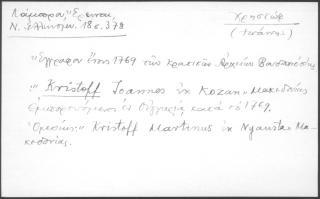 Λάμπρου, Έρευναι,
Ν. Ελληνομν. 18 σ. 378
Χρηστώφ
(Ιωάννης)
"Έγγραφον έτους 1769 των κρατικών Αρχείων Βουδαπέστης
"Kristoff Joannes ex Kozan" Μακεδονίας
εμπορευόμενος εν Ουγγαρία κατά το 1769.
Ομοίως: "Kristoff Martinus ex Nyausta" Μα-
κεδονίας.